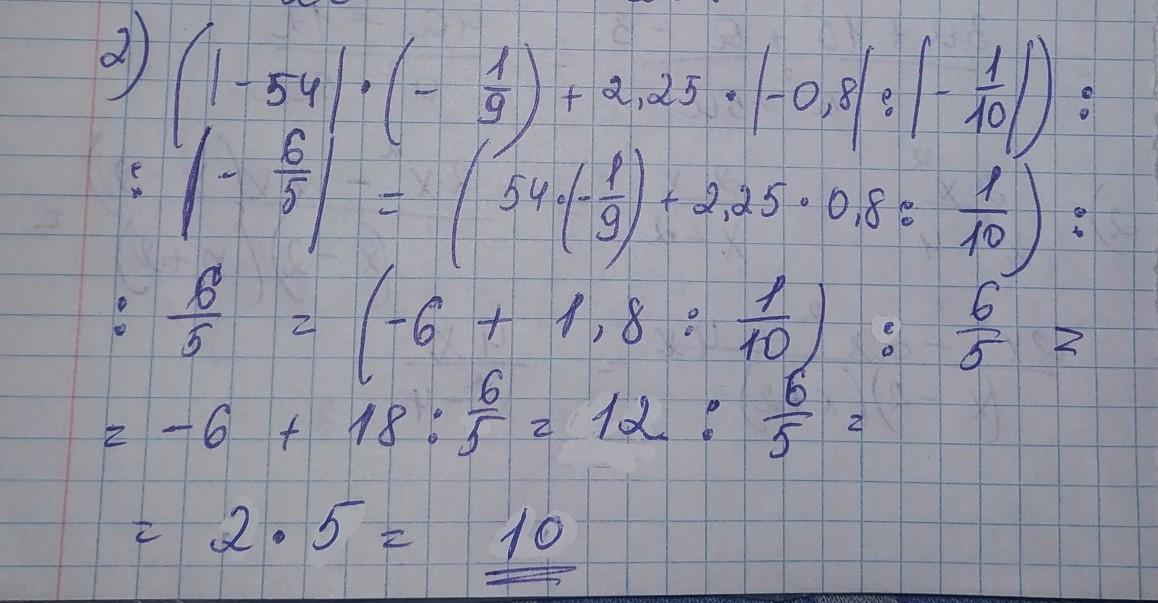 2) (|-54| · (- 1/9) + 2,25 · |-0,8| : |- 1/10|) :
: |- 6/5| = (54·(-1/9) + 2,25 · 0,8 : 1/10) :
: 6/5 = (-6 + 1,8 : 1/10) : 6/5 =
= -6 + 18 : 6/5 = 12 : 6/5 =
= 2 · 5 = 10